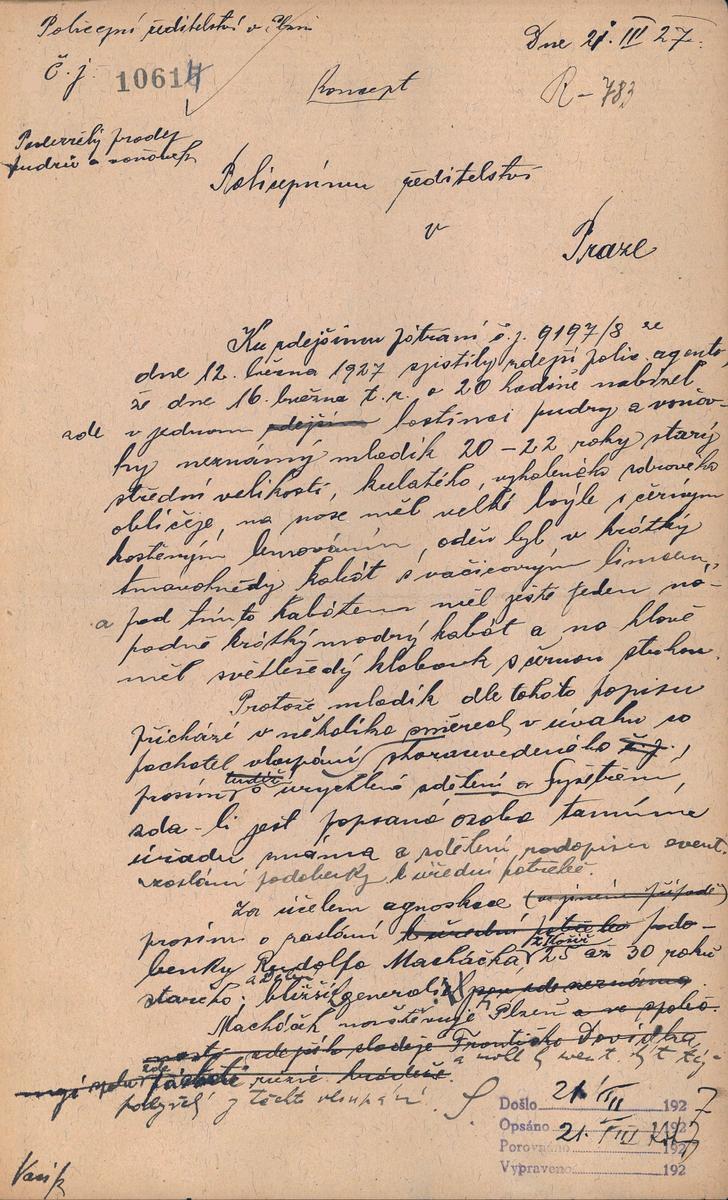 Policejní ředitelství v Plzni
Dne 21. III 27.
Č. j. 10614
Koncept
R – 783
Podezřelý prodej
pudrů a voňavek
Policejnímu ředitelství
v
Praze
Ku zdejšímu pátrání č. j. 9197/8 ze
dne 12. března 1927 zjistily zdejší polic. agenti,
že dne 16. března t. r. o 20 hodině nabízel
zde v jednom zdejším hostinci pudry a voňav-
ky neznámý mladík 20 – 22 roky starý
střední velikosti, kulatého, vyholeného zdravého
obličeje, na nose měl velké brýle s černým
kostěným lemováním, oděn byl v krátký
tmavohnědý kabát s vačicovým límcem,
a pod tímto kabátem měl ještě jeden ná-
padně krátký modrý kabát a na hlavě
měl světlešedý klobouk s černou stuhou.
Protože mladík dle tohoto popisu
přichází v několika směrech v úvahu co
pachatel vloupání shora uvedeného č. j.,
prosím o urychlené sdělení
zda-li jest popsaná osoba tamnímu
úřadu známa a sdělení event.
zaslání podobenky k úřední potřebě.
Za účelem agnoskace (v jiném případě)
prosím o zaslání k úřední potřebě podo-
benky Rudolfa Macháčka, 25 až 30 roků
starého, bližší general. jsou zde neznáma.
Macháček navštěvuje Plzeň a ve společ-
nosti zdejšího zloděje Františka Davídka
zde různé krádeže.
z těchto vloupání.
Došlo 21/III 1927
Opsáno 21. III 1927
Porovnáno 192
Vypraveno 192